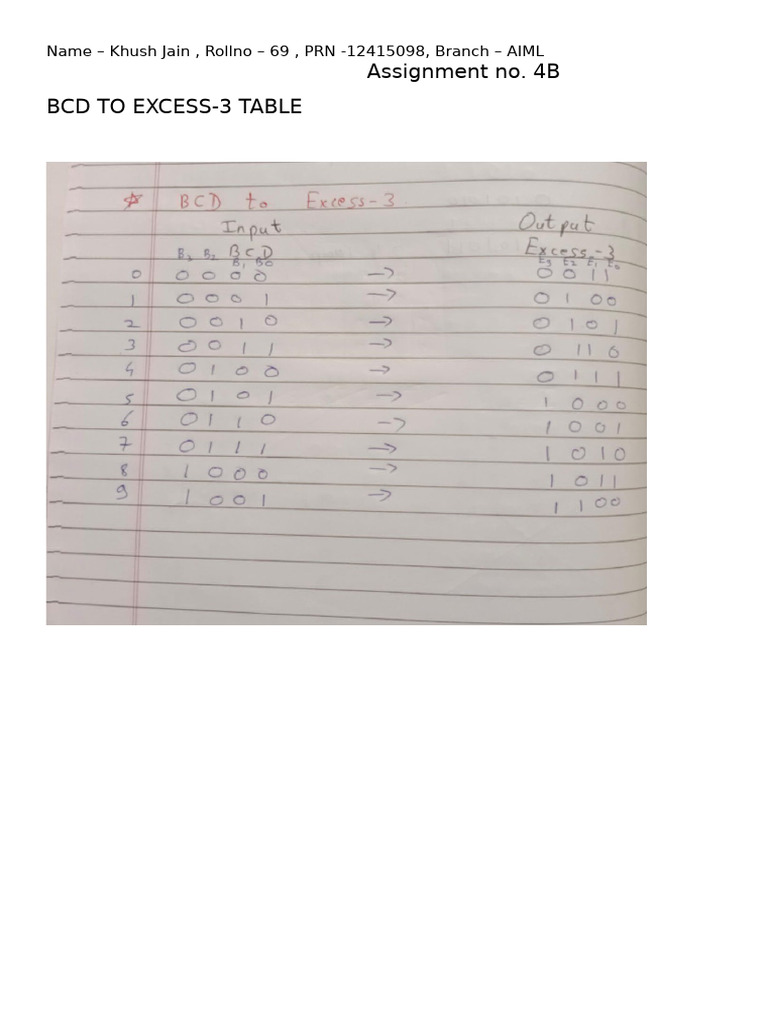 Name – Khush Jain , Rollno – 69 , PRN -12415098, Branch – AIML
Assignment no. 4B
BCD TO EXCESS-3 TABLE
☆ BCD to Excess-3
Input Output
BCD Excess-3
B₂ B₂ B₁ B0 E3 E2 E₁ E0
0 0 0 0 0 → 0 0 1 1
1 0 0 0 1 → 0 1 0 0
2 0 0 1 0 → 0 1 0 1
3 0 0 1 1 → 0 1 1 0
4 0 1 0 0 → 0 1 1 1
5 0 1 0 1 → 1 0 0 0
6 0 1 1 0 → 1 0 0 1
7 0 1 1 1 → 1 0 1 0
8 1 0 0 0 → 1 0 1 1
9 1 0 0 1 → 1 1 0 0